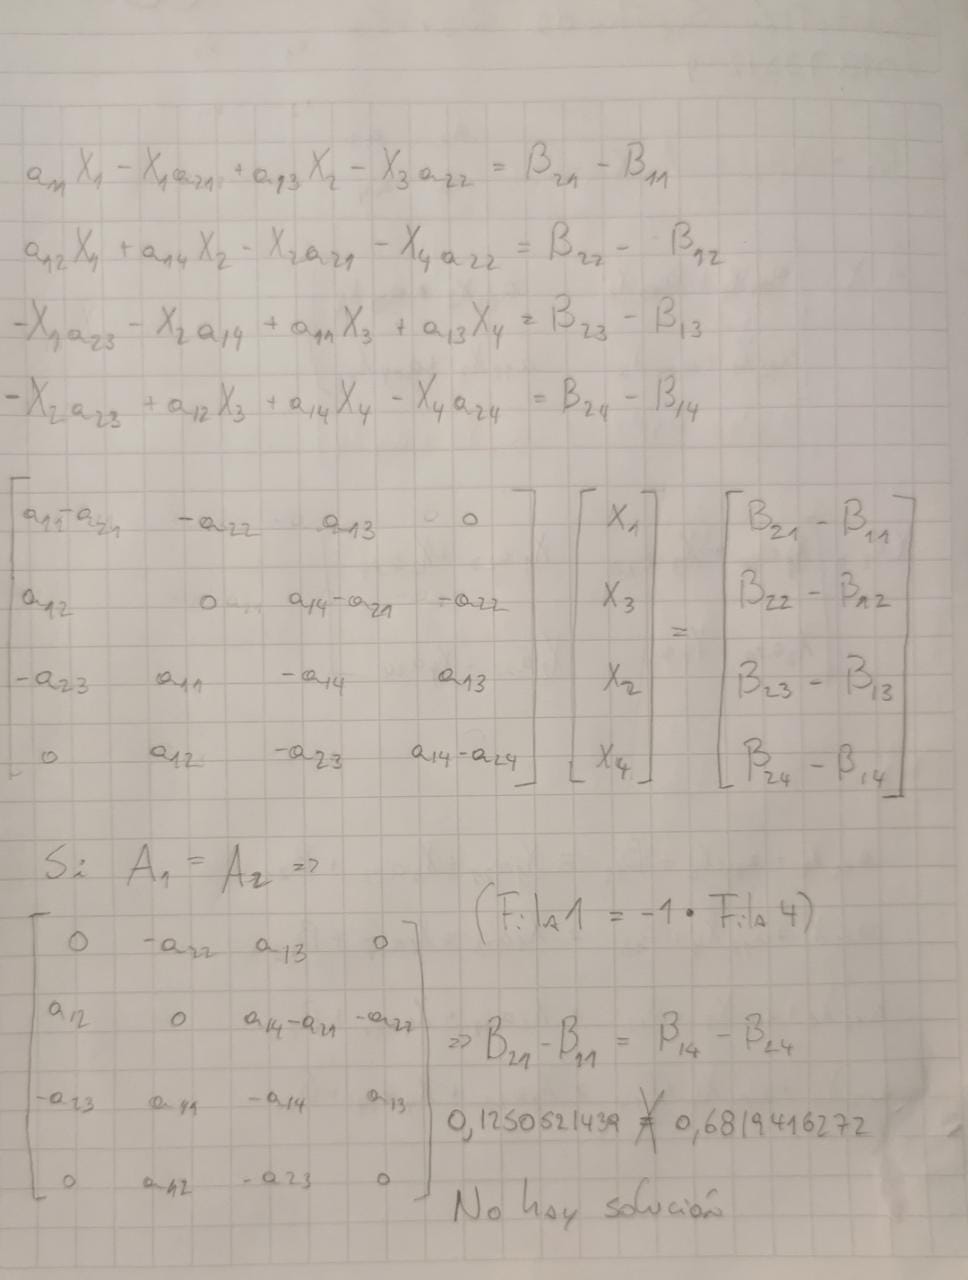 a₁₁X₁ - X₁a₂₁ + a₁₃X₂ - X₃a₂₂ = B₂₁ - B₁₁
a₁₂X₁ + a₁₄X₂ - X₂a₂₁ - X₄a₂₂ = B₂₂ - B₁₂
-X₁a₂₃ - X₂a₁₄ + a₁₁X₃ + a₁₃X₄ = B₂₃ - B₁₃
-X₂a₂₃ + a₁₂X₃ + a₁₄X₄ - X₄a₂₄ = B₂₄ - B₁₄
[a₁₁-a₂₁ -a₂₂ a₁₃ 0] [X₁] [B₂₁ - B₁₁]
[a₁₂ 0 a₁₄-a₂₁ -a₂₂] [X₃] = [B₂₂ - B₁₂]
[-a₂₃ a₁₁ -a₁₄ a₁₃] [X₂] [B₂₃ - B₁₃]
[0 a₁₂ -a₂₃ a₁₄-a₂₄] [X₄] [B₂₄ - B₁₄]
Si A₁ = A₂ =>
(Fila 1 = -1 • Fila 4)
[0 -a₂₂ a₁₃ 0]
[a₁₂ 0 a₁₄-a₂₁ -a₂₂]
[-a₂₃ a₁₁ -a₁₄ a₁₃]
[0 a₁₂ -a₂₃ 0]
=> B₂₁ - B₁₁ = B₁₄ - B₂₄
0,1250521439 ≠ 0,6819416272
No hay solución